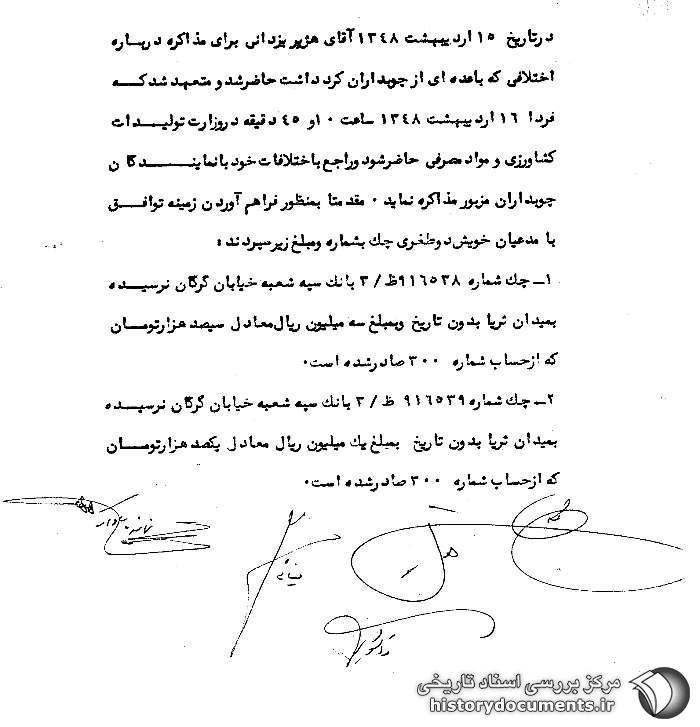 درتاریخ ۱۵ اردیبهشت ۱۳۴۸ آقای هژبر یزدانی برای مذاکره درباره
اختلافی که باعده ای از چوبداران کرد داشت حاضرشد و متعهد شد که
فردا ۱۶ اردیبهشت ۱۳۴۸ ساعت ۱۰ و ۴۵ دقیقه دروزارت تولیدات
کشاورزی و مواد مصرفی حاضرشود وراجع باختلافات خود بانمایندگان
چوبداران مزبور مذاکره نماید ۰ مقدمتا بمنظور فراهم آوردن زمینه توافق
با مدعیان خویش دوطغری چك بشماره ومبلغ زیرسپردند :
۱ـ چك شماره ۹۱۶۵۳۸ ظ / ۳ بانك سپه شعبه خیابان گرگان نرسیده
بمیدان ثریا بدون تاریخ وبمبلغ سه میلیون ریال معادل سیصد هزارتومان
که ازحساب شماره ۳۰۰ صادرشده است۰
۲ـ چك شماره ۹۱۶۵۳۹ ظ / ۳ بانك سپه شعبه خیابان گرگان نرسیده
بمیدان ثریا بدون تاریخ بمبلغ یك میلیون ریال معادل یکصد هزارتومان
که ازحساب شماره ۳۰۰ صادرشده است۰
مرکز بررسی اسناد تاریخی
historydocuments.ir